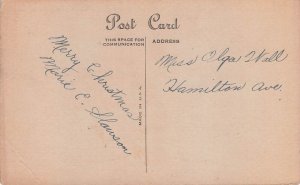 Post Card
THIS SPACE FOR
COMMUNICATION
ADDRESS
Merry Christmas
Marie C. Slawson
Miss Olga Woll
Hamilton Ave.
MADE IN U.S.A.